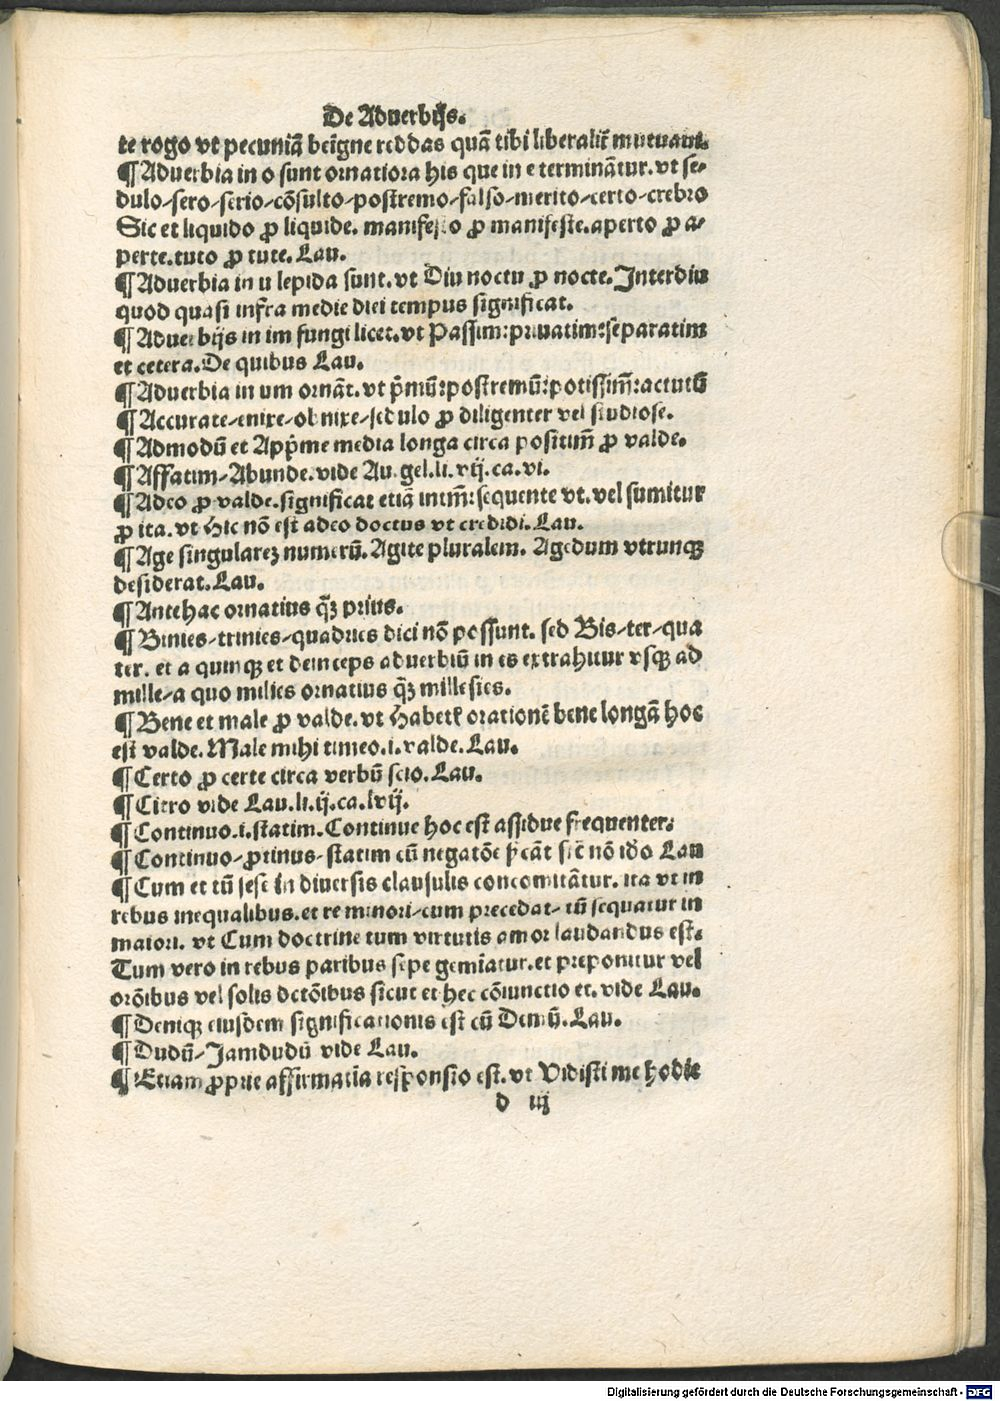 De Aduerbijs.
te rogo vt pecuniā beīgne reddas quā tibi liberalit̄ mutuaui.
¶ Aduerbia in o sunt ornatiora his que in e terminātur. vt se-
dulo-sero-serio-cōsulto-postremo-falso-merito-certo-crebro
Sic et liquido ꝓ liquide. manifesto ꝓ manifeste. aperto ꝓ a-
perte. tuto ꝓ tute. Lau.
¶ Aduerbia in u lepida sunt. vt Diu noctu ꝓ nocte. Interdiu
quod quasi infra medie diei tempus significat.
¶ Aduerbijs in im fungi licet. vt Passim: priuatim: separatim
et cetera. De quibus Lau.
¶ Aduerbia in um ornāt. vt p̄mū: postremū: potissim̄: actutū
¶ Accurate-enixe-obnixe-sedulo ꝓ diligenter vel studiose.
¶ Admodū et App̄me media longa circa positiuū ꝓ valde.
¶ Affatim-Abunde. vide Au. gel. li. vij. ca. vi.
¶ Adeo ꝓ valde. significat etiā intm̄: sequente vt. vel sumitur
ꝓ ita. vt Hic nō est adeo doctus vt credidi. Lau.
¶ Age singulareꝫ numerū. Agite pluralem. Agedum vtrunqꝫ
desiderat. Lau.
¶ Antehac ornatius qꝫ prius.
¶ Binies-trinies-quadries dici nō possunt. sed Bis-ter-qua
ter. et a quinqꝫ et deinceps aduerbiū in es extrahitur vsqꝫ ad
mille-a quo milies ornatius qꝫ millesies.
¶ Bene et male ꝓ valde. vt Habet᷑ orationē bene longā hoc
est valde. Male mihi timeo .i. valde. Lau.
¶ Certo ꝓ certe circa verbū scio. Lau.
¶ Citro vide Lau. li. ij. ca. lvij.
¶ Continuo .i. statim. Continue hoc est assidue frequenter.
¶ Continuo-ꝓtinus-statim cū negatōe nō ido Lau
¶ Cum et tū sese in diuersis clausulis concomitātur. ita vt in
rebus inequalibus. et re minori-cum precedat-tū sequatur in
maiori. vt Cum doctrine tum virtutis amor laudandus est.
Tum vero in rebus paribus sepe gemīatur. et preponitur vel
orōibus vel solis dctōibus sicut et hec cōiunctio et. vide Lau.
¶ Deniqꝫ eiusdem significationis est cū Demū. Lau.
¶ Dudū-Jamdudū vide Lau.
¶ Etiam ꝓprie affirmatīa responsio est. vt Vidisti me hodie
d iij
Digitalisierung gefördert durch die Deutsche Forschungsgemeinschaft - DFG